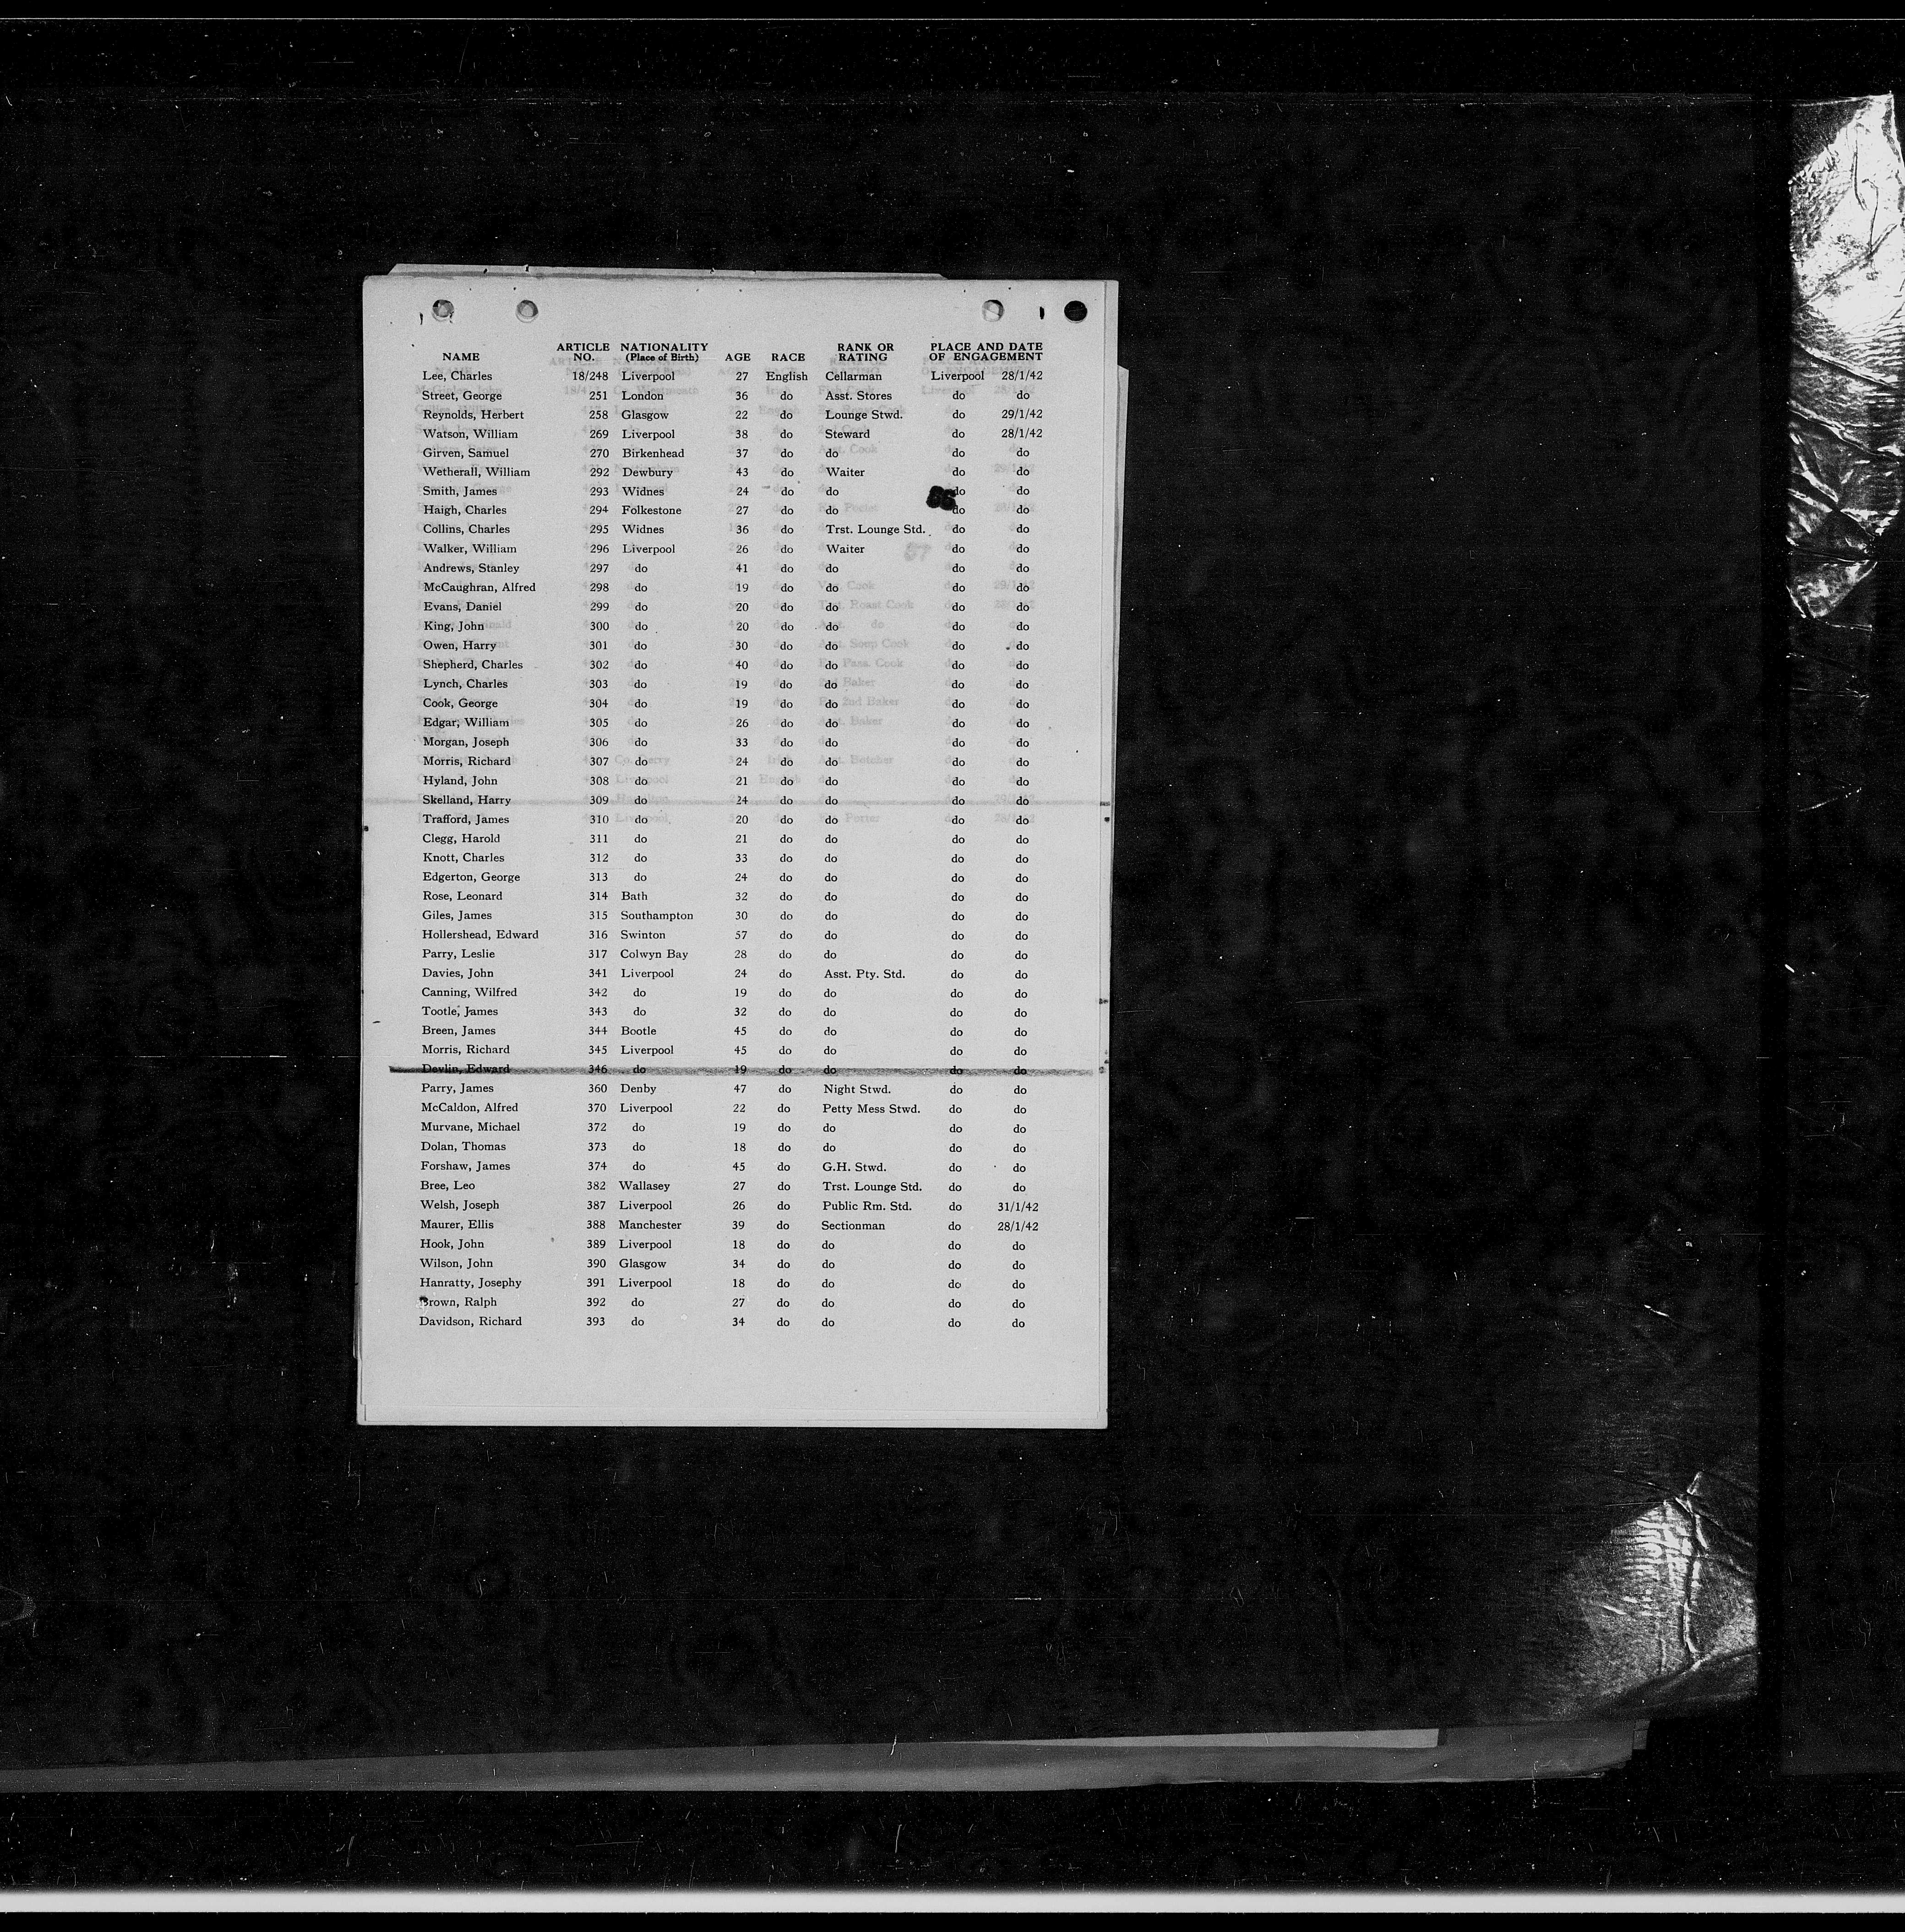 NAME ARTICLE NO. NATIONALITY (Place of Birth) AGE RACE RANK OR RATING PLACE AND DATE OF ENGAGEMENT
Lee, Charles 18/248 Liverpool 27 English Cellarman Liverpool 28/1/42
Street, George 251 London 36 do Asst. Stores do do
Reynolds, Herbert 258 Glasgow 22 do Lounge Stwd. do 29/1/42
Watson, William 269 Liverpool 38 do Steward do 28/1/42
Girven, Samuel 270 Birkenhead 37 do do do do
Wetherall, William 292 Dewbury 43 do Waiter do do
Smith, James 293 Widnes 24 do do do do
Haigh, Charles 294 Folkestone 27 do do do do
Collins, Charles 295 Widnes 36 do Trst. Lounge Std. do do
Walker, William 296 Liverpool 26 do Waiter do do
Andrews, Stanley 297 do 41 do do do do
McCaughran, Alfred 298 do 19 do do do do
Evans, Daniel 299 do 20 do do do do
King, John 300 do 20 do do do do
Owen, Harry 301 do 30 do do do do
Shepherd, Charles 302 do 40 do do do do
Lynch, Charles 303 do 19 do do do do
Cook, George 304 do 19 do do do do
Edgar, William 305 do 26 do do do do
Morgan, Joseph 306 do 33 do do do do
Morris, Richard 307 do 24 do do do do
Hyland, John 308 do 21 do do do do
Skelland, Harry 309 do 24 do do do do
Trafford, James 310 do 20 do do do do
Clegg, Harold 311 do 21 do do do do
Knott, Charles 312 do 33 do do do do
Edgerton, George 313 do 24 do do do do
Rose, Leonard 314 Bath 32 do do do do
Giles, James 315 Southampton 30 do do do do
Hollershead, Edward 316 Swinton 57 do do do do
Parry, Leslie 317 Colwyn Bay 28 do do do do
Davies, John 341 Liverpool 24 do Asst. Pty. Std. do do
Canning, Wilfred 342 do 19 do do do do
Tootle, James 343 do 32 do do do do
Breen, James 344 Bootle 45 do do do do
Morris, Richard 345 Liverpool 45 do do do do
Devlin, Edward 346 do 19 do do do do
Parry, James 360 Denby 47 do Night Stwd. do do
McCaldon, Alfred 370 Liverpool 22 do Petty Mess Stwd. do do
Murvane, Michael 372 do 19 do do do do
Dolan, Thomas 373 do 18 do do do do
Forshaw, James 374 do 45 do G.H. Stwd. do do
Bree, Leo 382 Wallasey 27 do Trst. Lounge Std. do do
Welsh, Joseph 387 Liverpool 26 do Public Rm. Std. do 31/1/42
Maurer, Ellis 388 Manchester 39 do Sectionman do 28/1/42
Hook, John 389 Liverpool 18 do do do do
Wilson, John 390 Glasgow 34 do do do do
Hanratty, Josephy 391 Liverpool 18 do do do do
Brown, Ralph 392 do 27 do do do do
Davidson, Richard 393 do 34 do do do do